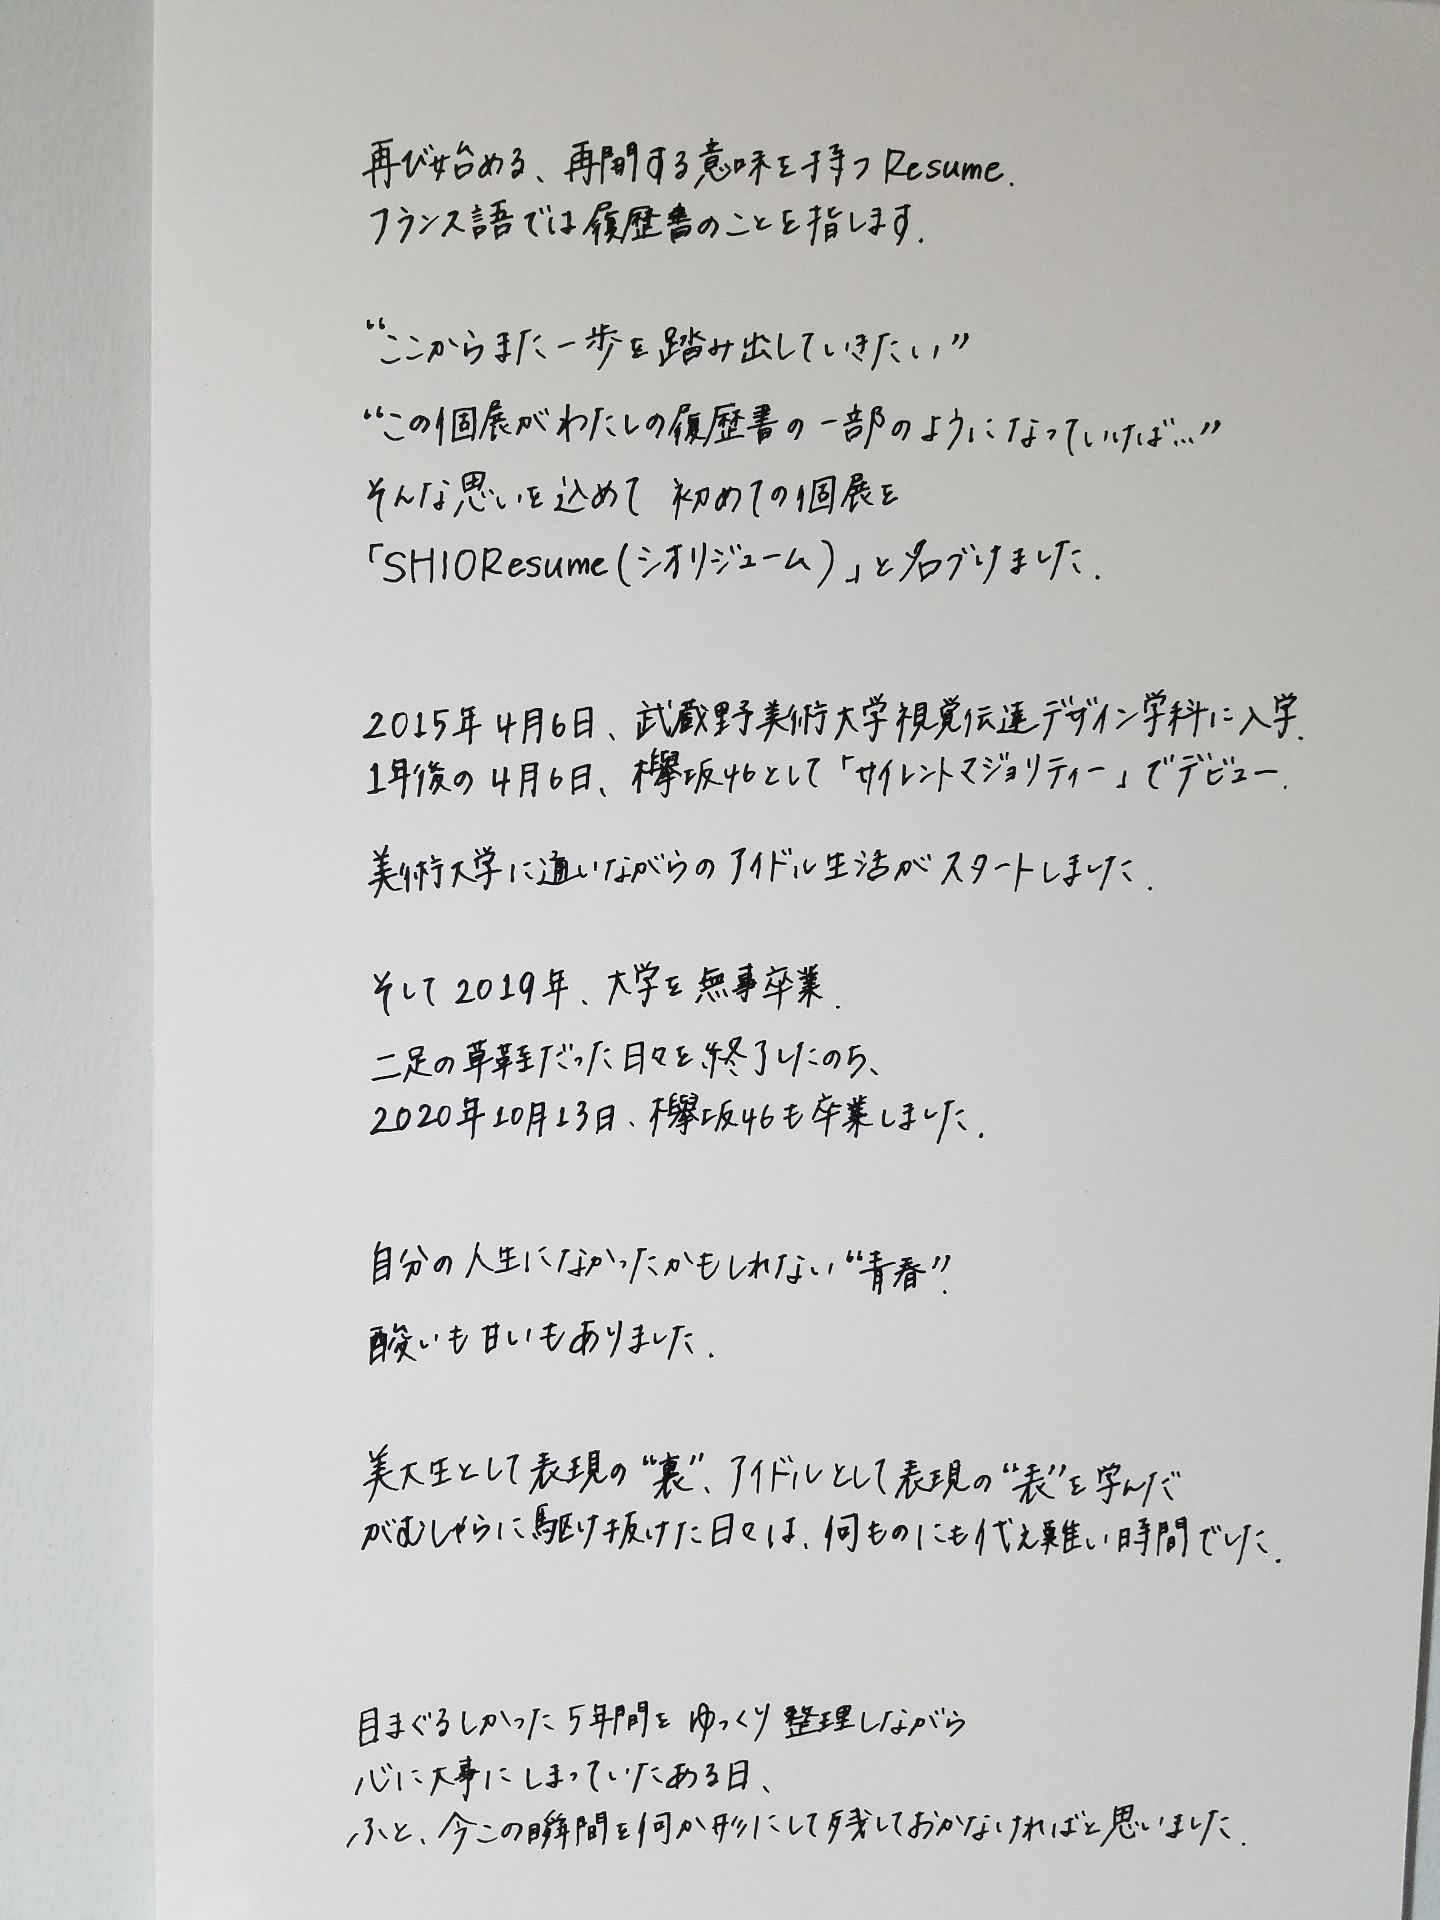 再び始める、再開する意味を持つ Resume.
フランス語では履歴書のことを指します.
“ここからまた一歩を踏み出していきたい”
“この個展がわたしの履歴書の一部のようになっていけば…”
そんな思いを込めて 初めての個展を
「SHIOResume(シオリジューム)」と名づけました.
2015年4月6日、武蔵野美術大学視覚伝達デザイン学科に入学.
1年後の4月6日、欅坂46として「サイレントマジョリティー」でデビュー.
美術大学に通いながらのアイドル生活がスタートしました.
そして2019年、大学を無事卒業.
二足の草鞋だった日々を終了したのち、
2020年10月13日、欅坂46も卒業しました.
自分の人生になかったかもしれない“青春”.
酸いも甘いもありました.
美大生として表現の“裏”、アイドルとして表現の“表”を学んだ
がむしゃらに駆け抜けた日々は、何ものにも代え難い時間でした.
目まぐるしかった5年間を ゆっくり整理しながら
心に大事にしまっていたある日、
ふと、今この瞬間を何か形にして残しておかなければと思いました.